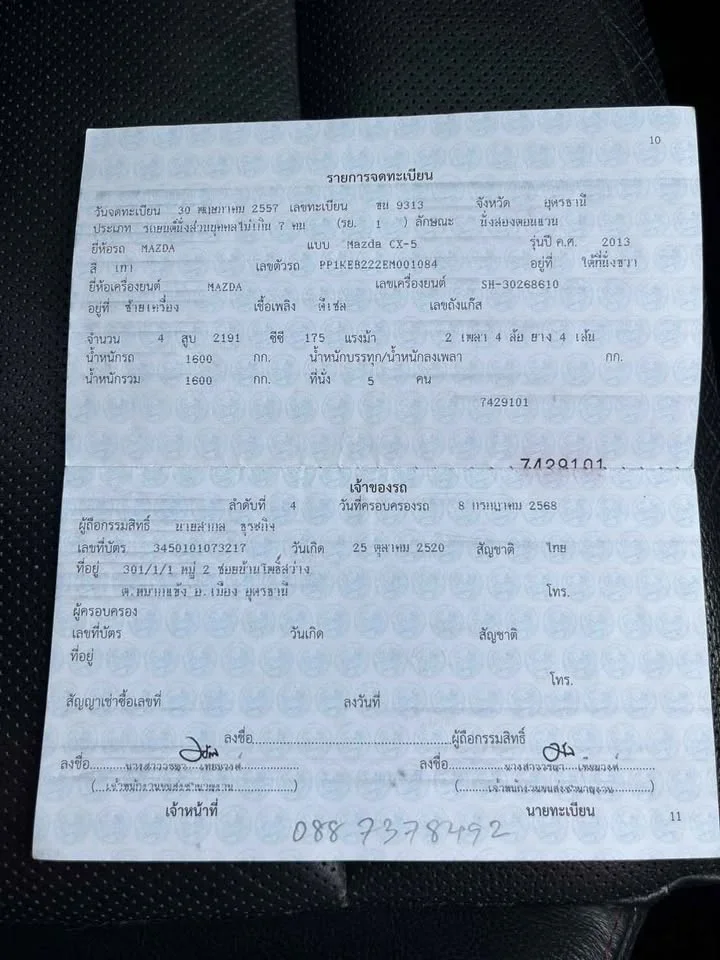 10
รายการจดทะเบียน
วันจดทะเบียน 30 พฤษภาคม 2557 เลขทะเบียน ขน 9313 จังหวัด อุดรธานี
ประเภท รถยนต์นั่งส่วนบุคคลไม่เกิน 7 คน (รย. 1 ) ลักษณะ นั่งสองตอนแวน
ยี่ห้อรถ MAZDA แบบ Mazda CX-5 รุ่นปี ค.ศ. 2013
สี เทา เลขตัวรถ PP1KEB222EM001084 อยู่ที่ ใต้ที่นั่งขวา
ยี่ห้อเครื่องยนต์ MAZDA เลขเครื่องยนต์ SH-30268610
อยู่ที่ ซ้ายเครื่อง เชื้อเพลิง ดีเซล เลขถังแก๊ส
จำนวน 4 สูบ 2191 ซีซี 175 แรงม้า 2 เพลา 4 ล้อ ยาง 4 เส้น
น้ำหนักรถ 1600 กก. น้ำหนักบรรทุก/น้ำหนักลงเพลา กก.
น้ำหนักรวม 1600 กก. ที่นั่ง 5 คน
7429101
7429101
เจ้าของรถ
ลำดับที่ 4 วันที่ครอบครองรถ 8 กรกฎาคม 2568
ผู้ถือกรรมสิทธิ์ นายสากล ธุระกิจ
เลขที่บัตร 3450101073217 วันเกิด 25 ตุลาคม 2520 สัญชาติ ไทย
ที่อยู่ 301/1/1 หมู่ 2 ซอยบ้านโพธิ์สว่าง
ต.หมากแข้ง อ.เมือง อุดรธานี โทร.
ผู้ครอบครอง
เลขที่บัตร วันเกิด สัญชาติ
ที่อยู่
โทร.
สัญญาเช่าซื้อเลขที่ ลงวันที่
ลงชื่อ ผู้ถือกรรมสิทธิ์
ลงชื่อ นางสาววรรณา เทียมวงศ์ ลงชื่อ นางสาววรรณา เทียมวงศ์
(เจ้าพนักงานขนส่งชำนาญงาน) (เจ้าพนักงานขนส่งชำนาญงาน)
เจ้าหน้าที่ นายทะเบียน
11
088 7378492